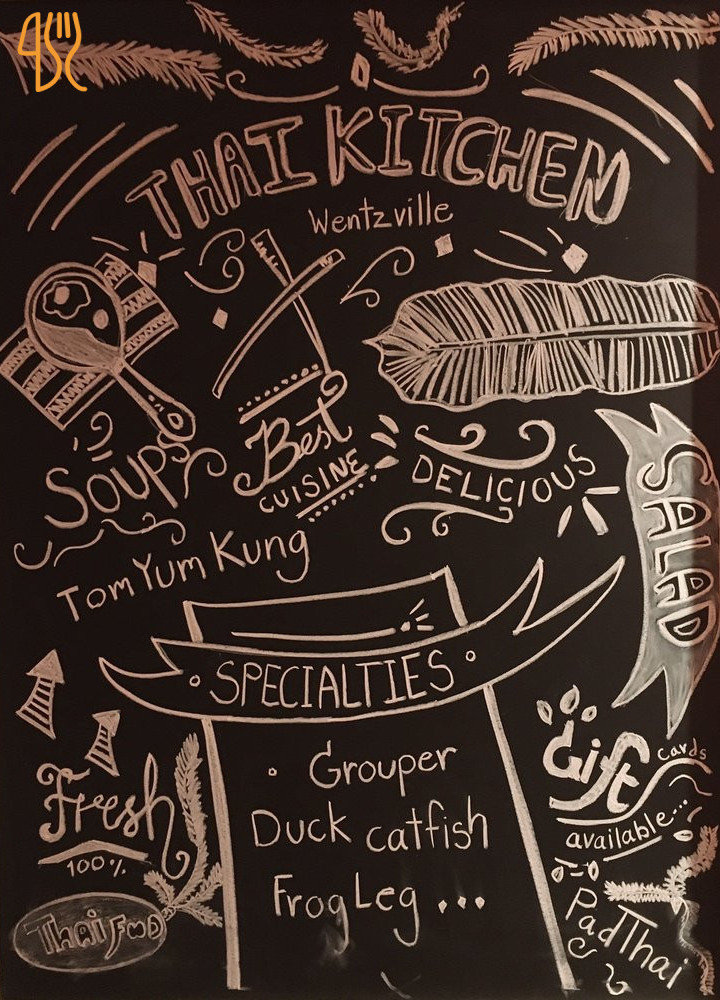 THAI KITCHEN
Wentzville
Soups
Best
CUISINE
DELICIOUS
SALAD
Tom Yum Kung
• SPECIALTIES •
• Grouper
Duck catfish
Frog Leg ...
Fresh
100%
Thai Food
Gift
cards
available...
Pad Thai